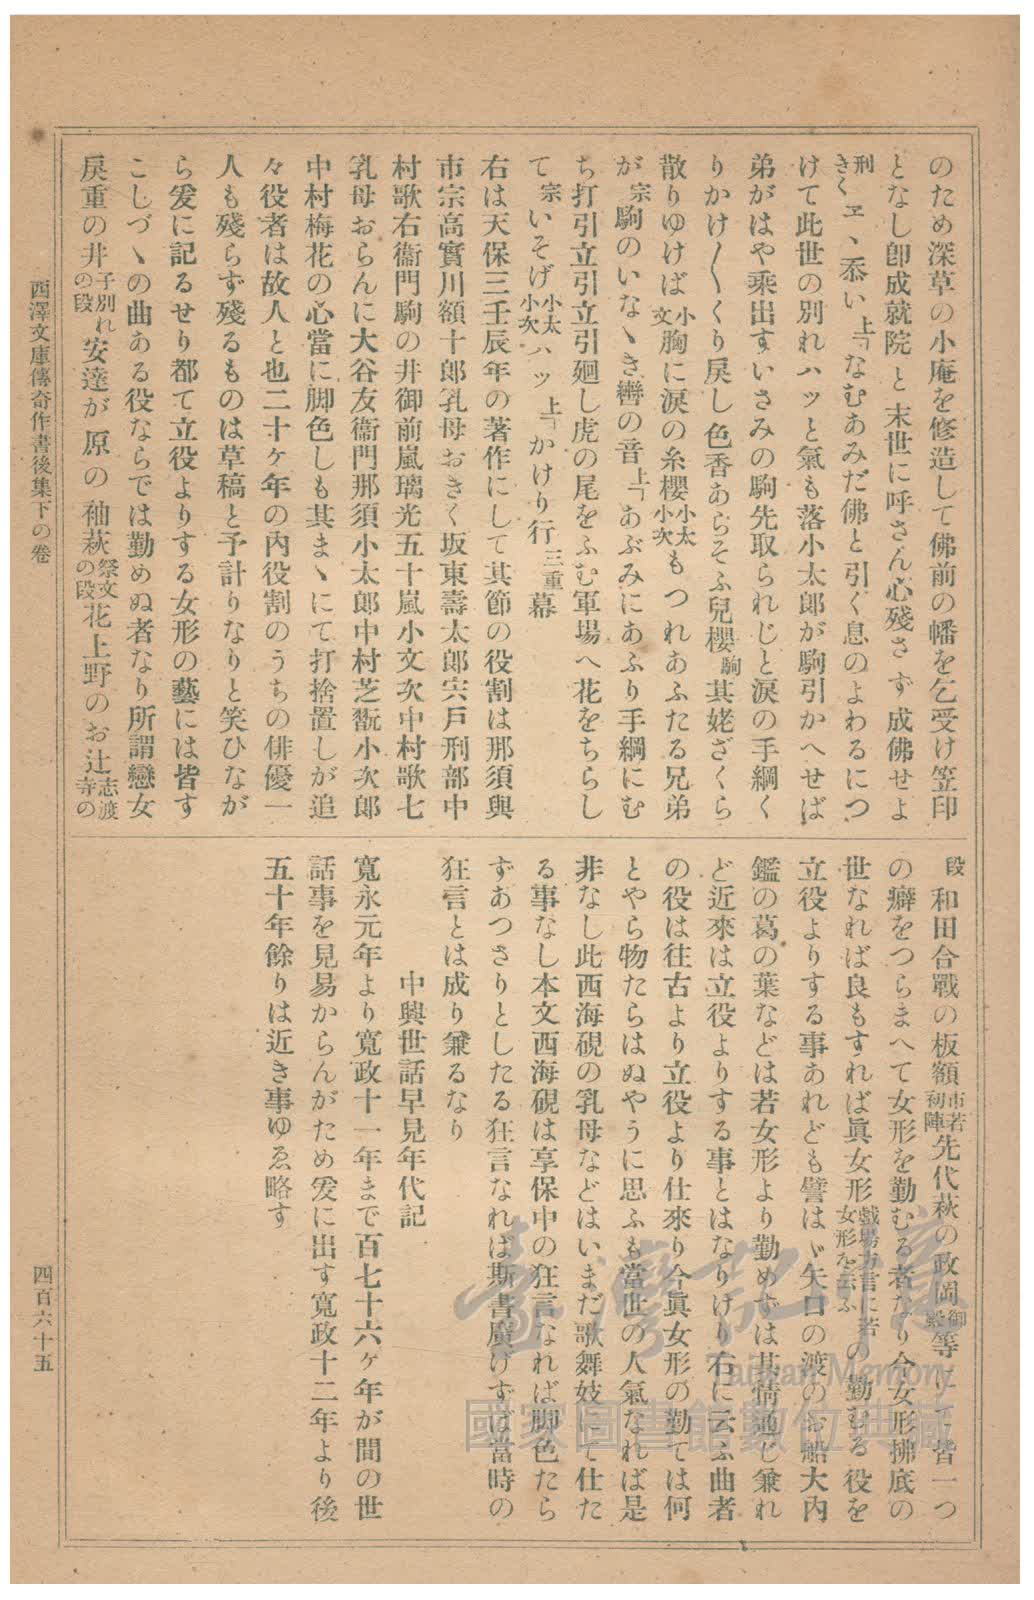 のため深草の小庵を修造して佛前の幡を乞受け笠印
となし卽成就院と末世に呼さん心殘さず成佛せよ
刑きくヱヽ忝い上「なむあみだ佛と引く息のよわるにつ
けて此世の別れハッと氣も落小太郎が駒引かへせば
弟がはや乘出すいさみの駒先取られじと淚の手綱く
りかけ〳〵くり戾し色香あらそふ兒櫻駒其姥ざくら
散りゆけば小文胸に淚の糸櫻小太小次もつれあふたる兄弟
が宗駒のいなヽき轡の音上「あぶみにあふり手綱にむ
ち打引立引立引廻し虎の尾をふむ軍場へ花をちらし
て宗いそげ小太小次ハッ上「かけり行三重幕
右は天保三壬辰年の著作にして其節の役割は那須與
市宗高實川額十郞乳母おきく坂東壽太郞宍戶刑部中
村歌右衞門駒の井御前嵐璃光五十嵐小文次中村歌七
乳母おらんに大谷友衞門那須小太郞中村芝翫小次郞
中村梅花の心當に脚色しも其まヽにて打捨置しが追
々役者は故人と也二十ヶ年の內役割のうちの俳優一
人も殘らず殘るものは草稿と予計りなりと笑ひなが
ら爰に記るせり都て立役よりする女形の藝には皆す
こしづヽの曲ある役ならでは勤めぬ者なり所謂戀女
戾重の井子別れの段安達が原の袖萩祭文の段花上野のお辻志渡寺の
段和田合戰の板額市若初陣先代萩の政岡御殿等にて皆一つ
の癖をつらまへて女形を勤むる者なり今女形拂底の
世なれば良もすれば眞女形戲場方言に若女形を云ふの勤むる役を
立役よりする事あれども譬はヾ矢口の渡のお船大內
鑑の葛の葉などは若女形より勤めずは其情通じ兼れ
ど近來は立役よりする事とはなりけり右に云ふ曲者
の役は往古より立役より仕來り今眞女形の勤ては何
とやら物たらはぬやうに思ふも當世の人氣なれば是
非なし此西海硯の乳母などはいまだ歌舞妓にて仕た
る事なし本文西海硯は享保中の狂言なれば脚色たら
ずあつさりとしたる狂言なれば斯書廣げずは當時の
狂言とは成り兼るなり
中興世話早見年代記
寬永元年より寬政十一年まで百七十六ヶ年が間の世
話事を見易からんがため爰に出す寬政十二年より後
五十年餘りは近き事ゆゑ略す
西澤文庫傳奇作書後集下の卷
四百六十五
臺灣記憶
Taiwan Memory
國家圖書館數位典藏